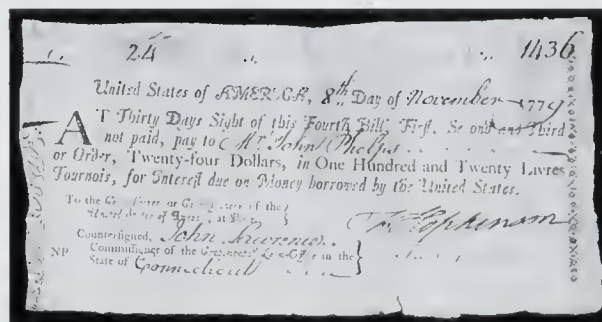 24 1436
United States of AMERICA, 8th Day of November 1779
AT Thirty Days Sight of this Fourth Bill, First, Second and Third
not paid, pay to Mr. John Phelps
or Order, Twenty-four Dollars, in One Hundred and Twenty Livres
Tournois, for Interest due on Money borrowed by the United States.
To the Commissioner or Commissioners of the
United States of America at Paris
F. Hopkinson
Countersigned, John Lawrence
NP Commissioner of the Continental Loan-Office in the
State of Connecticut